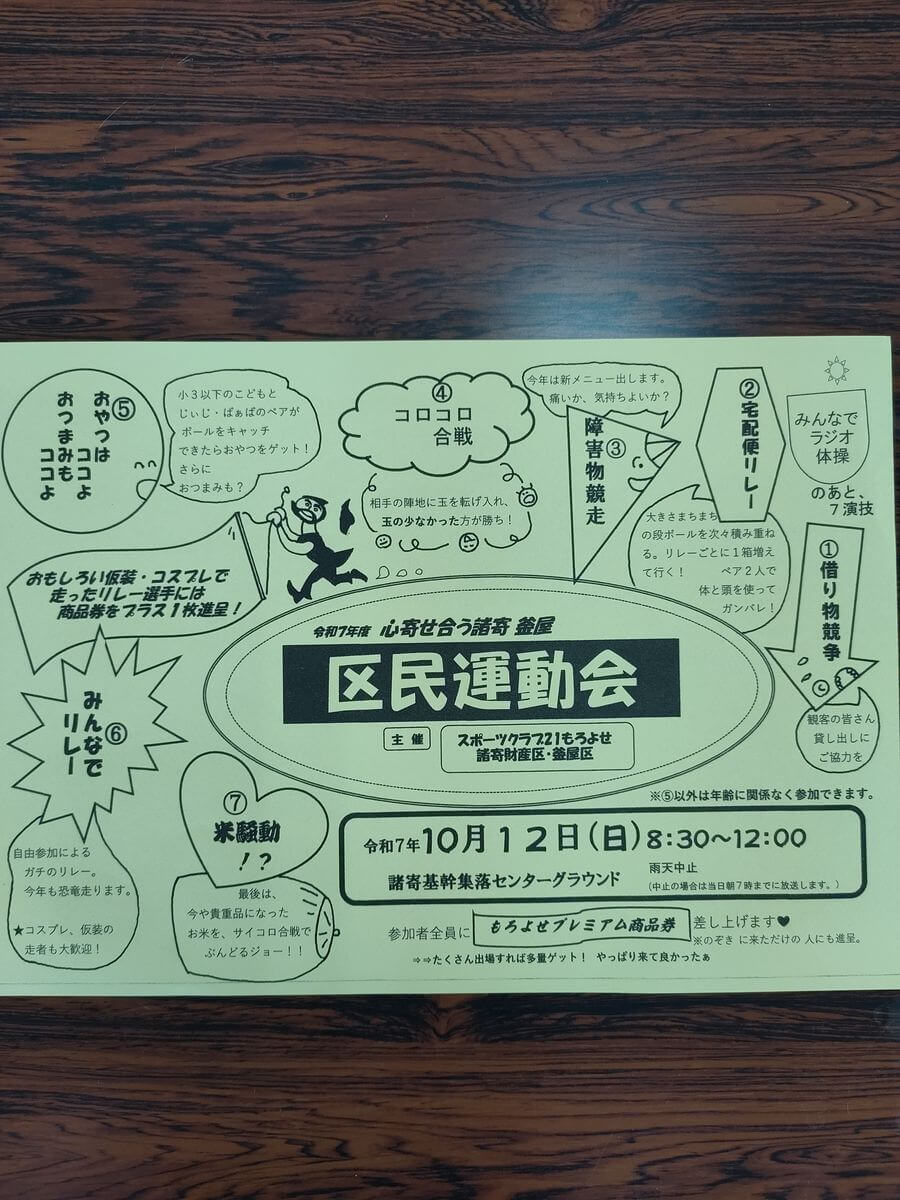 令和7年度 心寄せ合う諸寄 釜屋
区民運動会
主 催
スポーツクラブ21もろよせ
諸寄財産区・釜屋区
みんなで
ラジオ
体操
のあと、
7演技
①借り物競争
観客の皆さん
貸し出しに
ご協力を
②宅配便リレー
大きさまちまち
の段ボールを次々積み重ね
る。リレーごとに1箱増え
て行く! ペア2人で
体と頭を使って
ガンバレ!
③障害物競走
今年は新メニュー出します。
痛いか、気持ちよいか?
④
コロコロ
合戦
相手の陣地に玉を転げ入れ、
玉の少なかった方が勝ち!
⑤
おやつは ココよ
おつまみも ココよ
小3以下のこどもと
じぃじ・ばぁばのペアが
ボールをキャッチ
できたらおやつをゲット!
さらに
おつまみも?
おもしろい仮装・コスプレで
走ったリレー選手には
商品券をプラス1枚進呈!
⑥
みんなで
リレー
自由参加による
ガチのリレー。
今年も恐竜走ります。
★コスプレ、仮装の
走者も大歓迎!
⑦
米騒動
!?
最後は、
今や貴重品になった
お米を、サイコロ合戦で
ぶんどるジョー!!
※⑤以外は年齢に関係なく参加できます。
令和7年10月12日(日)8:30~12:00
諸寄基幹集落センターグラウンド
雨天中止
(中止の場合は当日朝7時までに放送します。)
参加者全員に もろよせプレミアム商品券 差し上げます♥
※のぞき に来ただけの 人にも進呈。
⇒⇒たくさん出場すれば多量ゲット! やっぱり来て良かったぁ